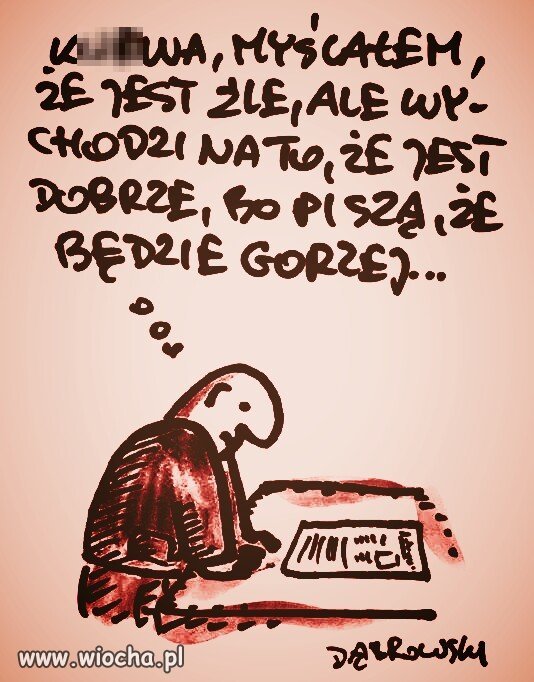 K WA, MYŚLAŁEM,
ŻE JEST ŹLE, ALE WY-
CHODZI NA TO, ŻE JEST
DOBRZE, BO PISZĄ, ŻE
BĘDZIE GORZEJ...
DĄBROWSKI
www.wiocha.pl